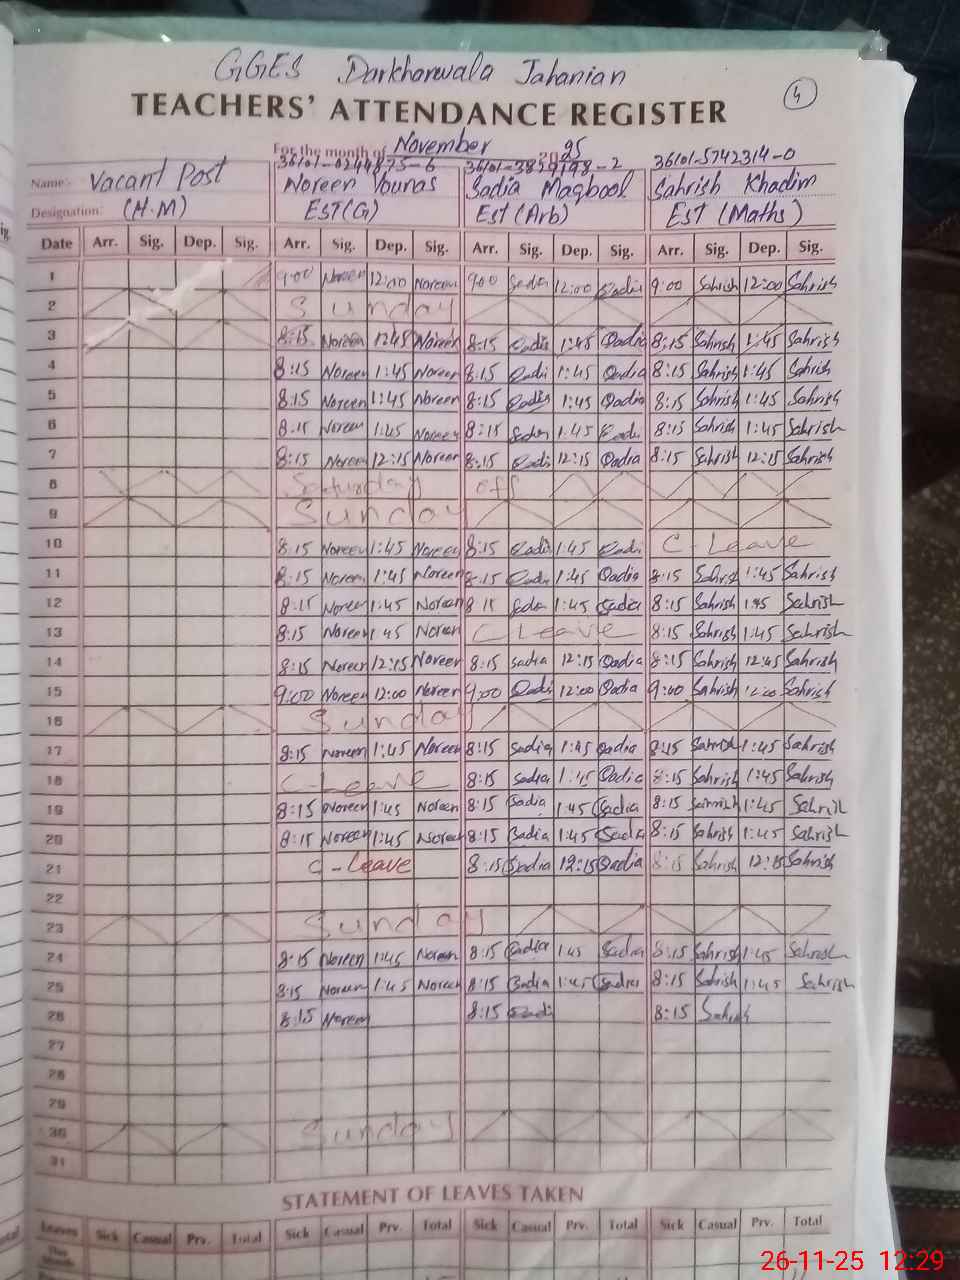 GGES Darkhanwala Jahanian
4
TEACHERS' ATTENDANCE REGISTER
For the month of November 2025
36101-5742314-0
Name:- Vacant Post Noreen Younas Sadia Maqbool Sahrish Khadim
Designation: (H.M) EST(G) Est (Arb) EST (Maths)
Date Arr. Sig. Dep. Sig. Arr. Sig. Dep. Sig. Arr. Sig. Dep. Sig. Arr. Sig. Dep. Sig.
1 9:00 Noreen 12:00 Noreen 9:00 Sadia 12:00 Sadia 9:00 Sahrish 12:00 Sahrish
2 Sunday
3 8:15 Noreen 1245 Noreen 8:15 Sadia 1:45 Sadia 8:15 Sahrish 1:45 Sahrish
4 8:15 Noreen 1:45 Noreen 8:15 Sadia 1:45 Sadia 8:15 Sahrish 1:45 Sahrish
5 8:15 Noreen 1:45 Noreen 8:15 Sadia 1:45 Sadia 8:15 Sahrish 1:45 Sahrish
6 8:15 Noreen 1:45 Noreen 8:15 Sadia 1:45 Sadia 8:15 Sahrish 1:45 Sahrish
7 8:15 Noreen 12:15 Noreen 8:15 Sadia 12:15 Sadia 8:15 Sahrish 12:15 Sahrish
8 Saturday off
9 Sunday
10 8:15 Noreen 1:45 Noreen 8:15 Sadia 1:45 Sadia C-Leave
11 8:15 Noreen 1:45 Noreen 8:15 Sadia 1:45 Sadia 8:15 Sahrish 1:45 Sahrish
12 8:15 Noreen 1:45 Noreen 8 15 Sadia 1:45 Sadia 8:15 Sahrish 1:45 Sahrish
13 8:15 Noreen 1:45 Noreen C Leave 8:15 Sahrish 1:45 Sahrish
14 8:15 Noreen 12:15 Noreen 8:15 Sadia 12:15 Sadia 8:15 Sahrish 12:45 Sahrish
15 9:00 Noreen 12:00 Noreen 9:00 Sadia 12:00 Sadia 9:00 Sahrish 12:00 Sahrish
16 Sunday
17 8:15 Noreen 1:45 Noreen 8:15 Sadia 1:45 Sadia 8:15 Sahrish 1:45 Sahrish
18 C-Leave 8:15 Sadia 1:45 Sadia 8:15 Sahrish 1:45 Sahrish
19 8:15 Noreen 1:45 Noreen 8:15 Sadia 1:45 Sadia 8:15 Sahrish 1:45 Sahrish
20 8:15 Noreen 1:45 Noreen 8:15 Sadia 1:45 Sadia 8:15 Sahrish 1:45 Sahrish
21 C-Leave 8:15 Sadia 12:15 Sadia 8:15 Sahrish 12:15 Sahrish
22
23 Sunday
24 8:15 Noreen 1:45 Noreen 8:15 Sadia 1:45 Sadia 8:15 Sahrish 1:45 Sahrish
25 8:15 Noreen 1:45 Noreen 8:15 Sadia 1:45 Sadia 8:15 Sahrish 1:45 Sahrish
26 8:15 Noreen 8:15 Sadia 8:15 Sahrish
27
28
29
30 Sunday
31
STATEMENT OF LEAVES TAKEN
Leaves Sick Casual Prv. Total Sick Casual Prv. Total Sick Casual Prv. Total Sick Casual Prv. Total
This Month
26-11-25 12:29